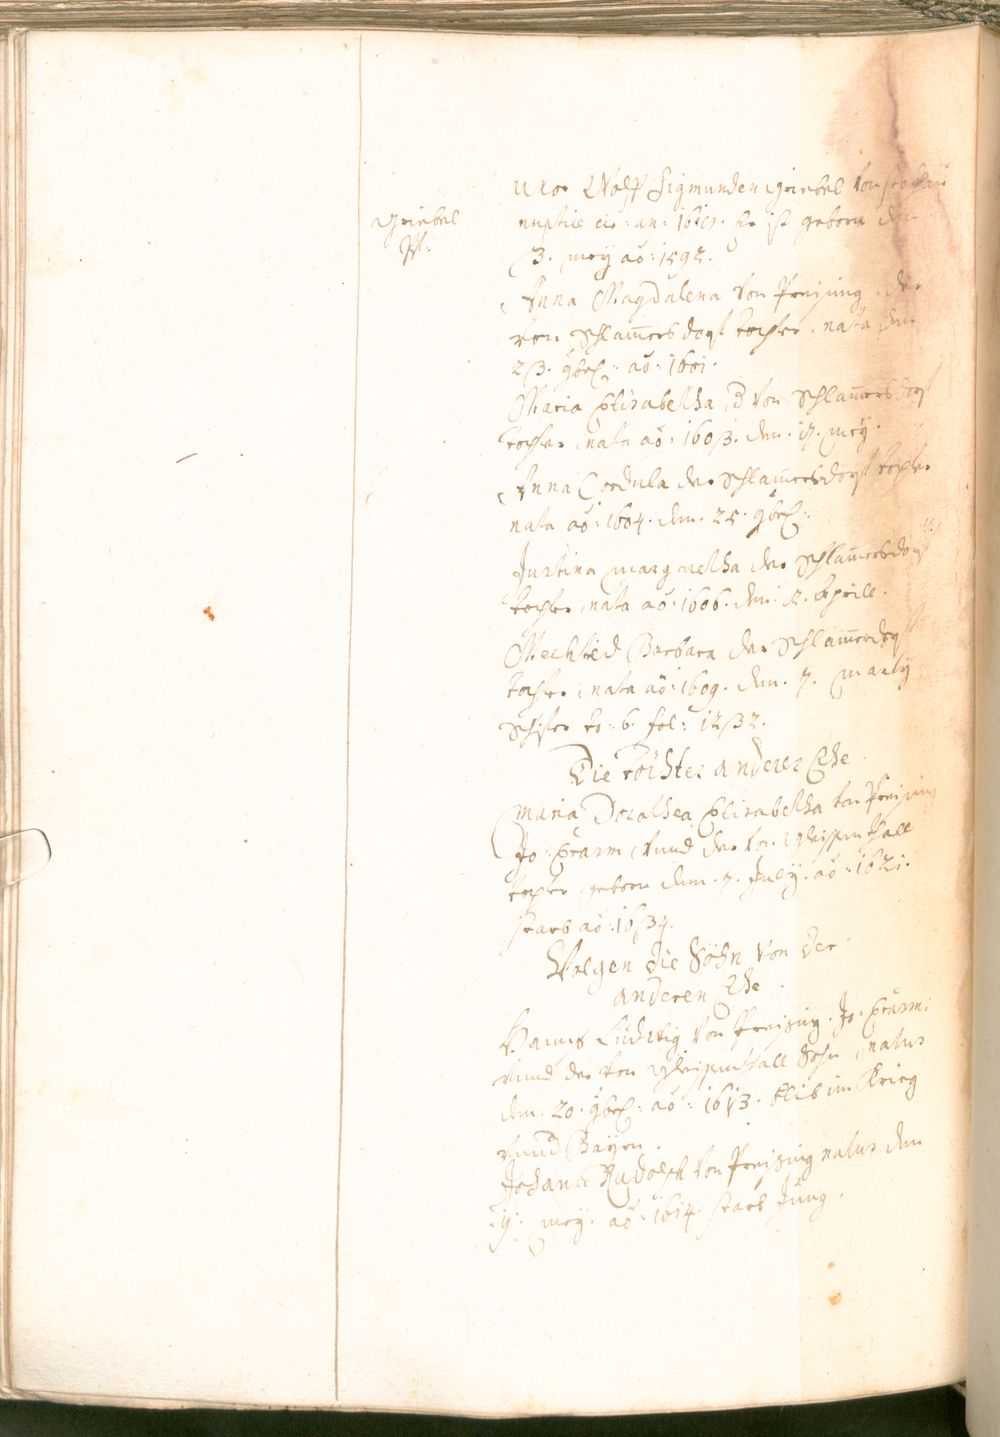 Griebel
uxor Wolff Sigmunden Griebel von
nuptiae an: ist geborn den
3. Meÿ aō: 1592.
Anna Magdalena von Preijsing der
von Schlam̄ersdorf tochter nata den
23. 9br: aō: 1601.
Maria Elisabetha d von Schlam̄ersdorf
tochter nata aō: 1603. den. 17. meÿ.
Anna Cordula der Schlam̄ersdorf tochter
nata aō: 1604. den. 25. 9br:
Justina margaretha der Schlam̄ersdorf
tochter nata aō: 1606. den. 2. Aprill.
Mechtild Barbara der Schlam̄erdorf
tochter nata aō: 1609. den. 7. Martÿ
to: 6. fol: 1232.
Die töchter anderer Ehe
Maria Dorathea Elisabetha von Preijsing
Jo: Erasm vnnd der von Gleissenthall
tochter geborn den. 7. Julÿ. aō: 1621.
starb aō: 1634.
Volgen die Söhn von der
anderen Ehe
Hannß Ludwig von Preijsing. Jo: Erasmi
vnnd der von Gleissenthall Sohn natus
den. 20. 9br: aō: 1613. blib im Krieg
vnnd Bayrn.
Johann Rudolph von Preijsing natus den
meÿ. aō: 1614. starb Jung.